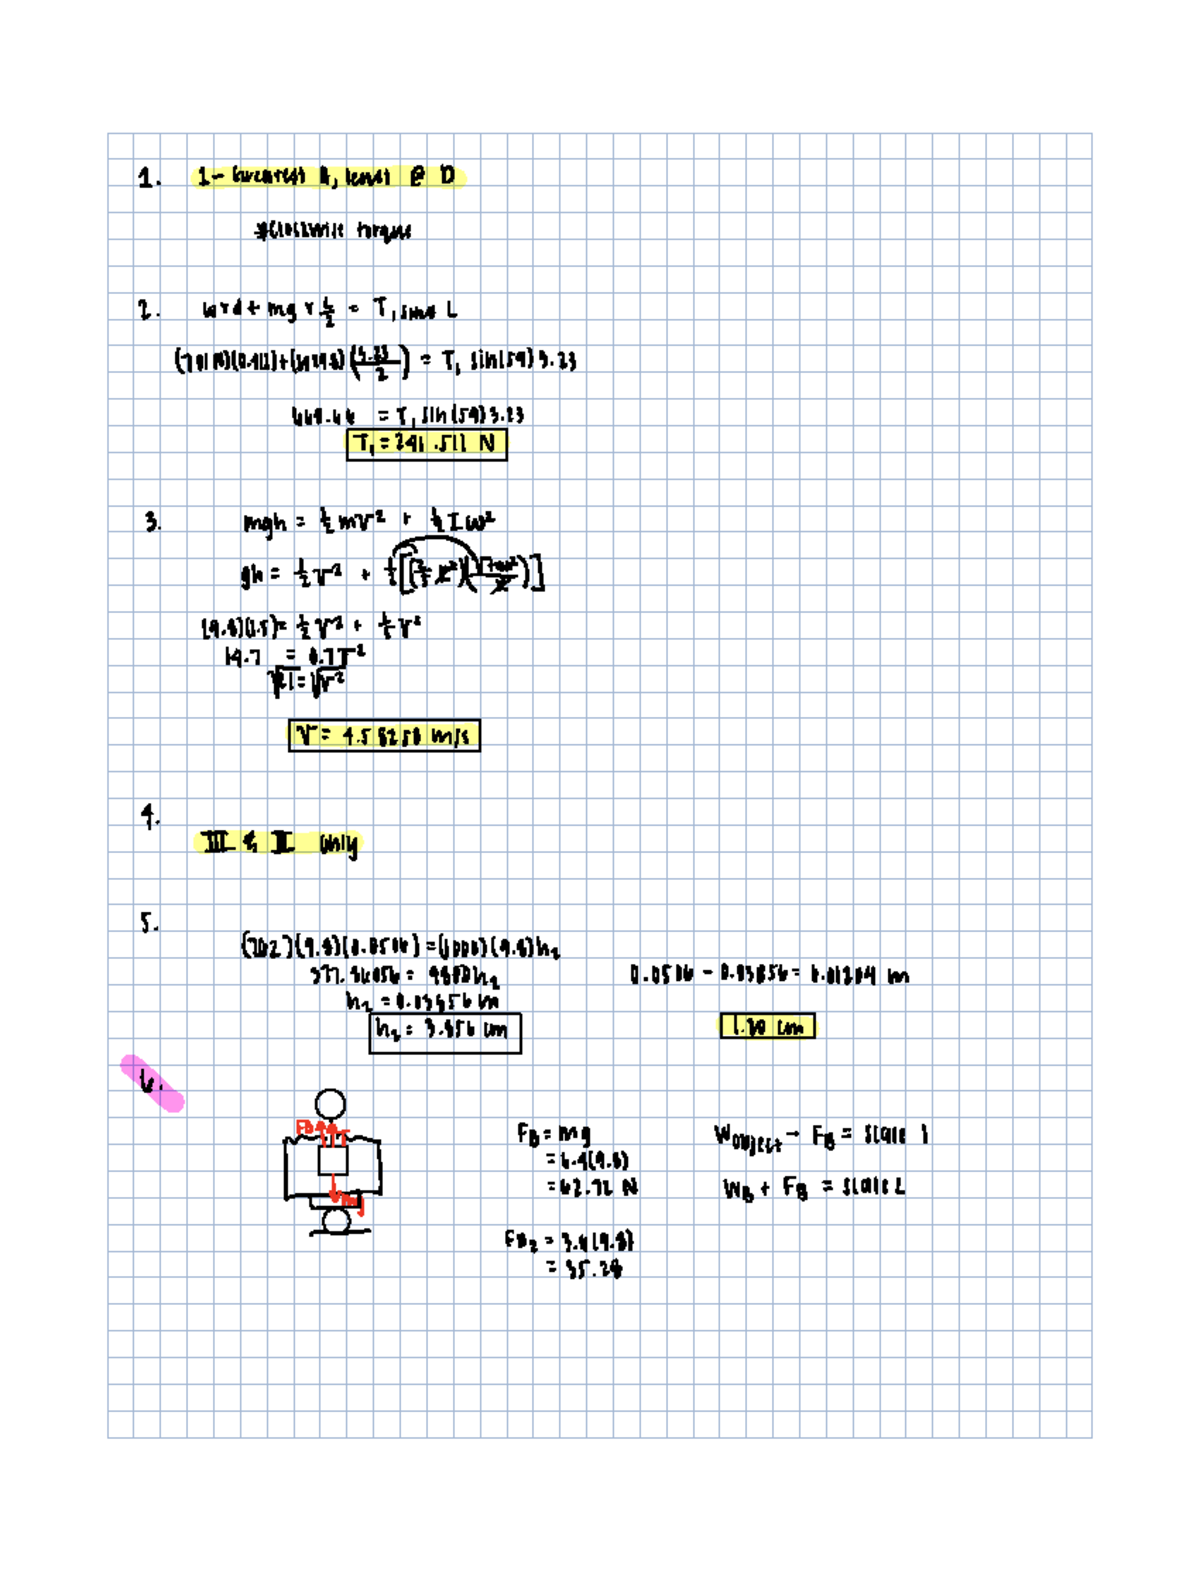 1. 1- Greatest A, least @ D
*Clockwise torque
2. w x d + mg x L/2 = T₁ sinθ L
= T₁ sin(59) 3.23
= T₁ sin(59) 3.23
T₁ = 241.511 N
3. mgh = ½ mv² + ½ I ω²
gh = ½ v² + ½
(9.8)(1.5) = ½ v² + ⅕ v²
14.7 = 0.7 v²
√21 = √v²
v = 4.58258 m/s
4.
III & II only
5.
(762)(9.8)(0.0506) = (1000)(9.8) h₂
= 9800 h₂
h₂ = 0.03856 m
h₂ = 3.856 cm
0.0506 - 0.03856 = 0.01204 m
1.20 cm
6.
FB T
mg
F_B = mg
= 6.4(9.8)
= 62.72 N
F_B₂ = 3.6(9.8)
= 35.28
W_object - F_B = scale 1
W_B + F_B = scale 2